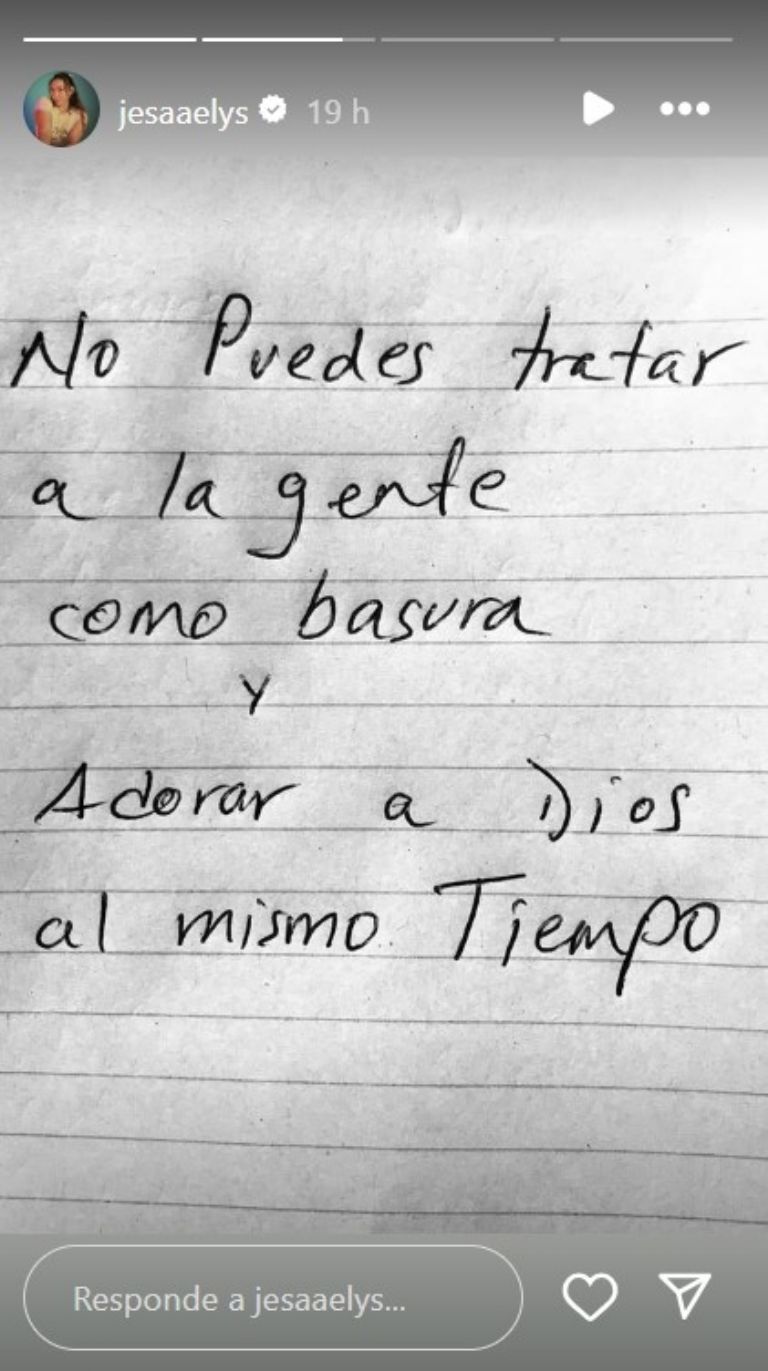 jesaaelys 19 h
No Puedes tratar
a la gente
como basura
y
Adorar a Dios
al mismo Tiempo
Responde a jesaaelys...